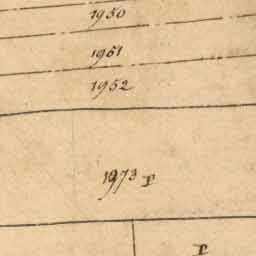 1950
1951
1952
1973 P
P